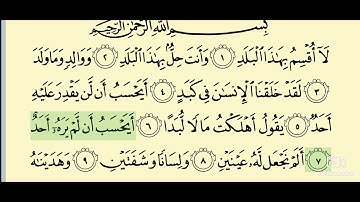 بِسْمِ ٱللَّهِ ٱلرَّحْمَٰنِ ٱلرَّحِيمِ
لَآ أُقْسِمُ بِهَٰذَا ٱلْبَلَدِ ١ وَأَنتَ حِلٌّۢ بِهَٰذَا ٱلْبَلَدِ ٢ وَوَالِدٍ وَمَا وَلَدَ
٣ لَقَدْ خَلَقْنَا ٱلْإِنسَٰنَ فِي كَبَدٍ ٤ أَيَحْسَبُ أَن لَّن يَقْدِرَ عَلَيْهِ
أَحَدٌ ٥ يَقُولُ أَهْلَكْتُ مَالًا لُّبَدًا ٦ أَيَحْسَبُ أَن لَّمْ يَرَهُۥٓ أَحَدٌ
٧ أَلَمْ نَجْعَل لَّهُۥ عَيْنَيْنِ ٨ وَلِسَانًا وَشَفَتَيْنِ ٩ وَهَدَيْنَٰهُ